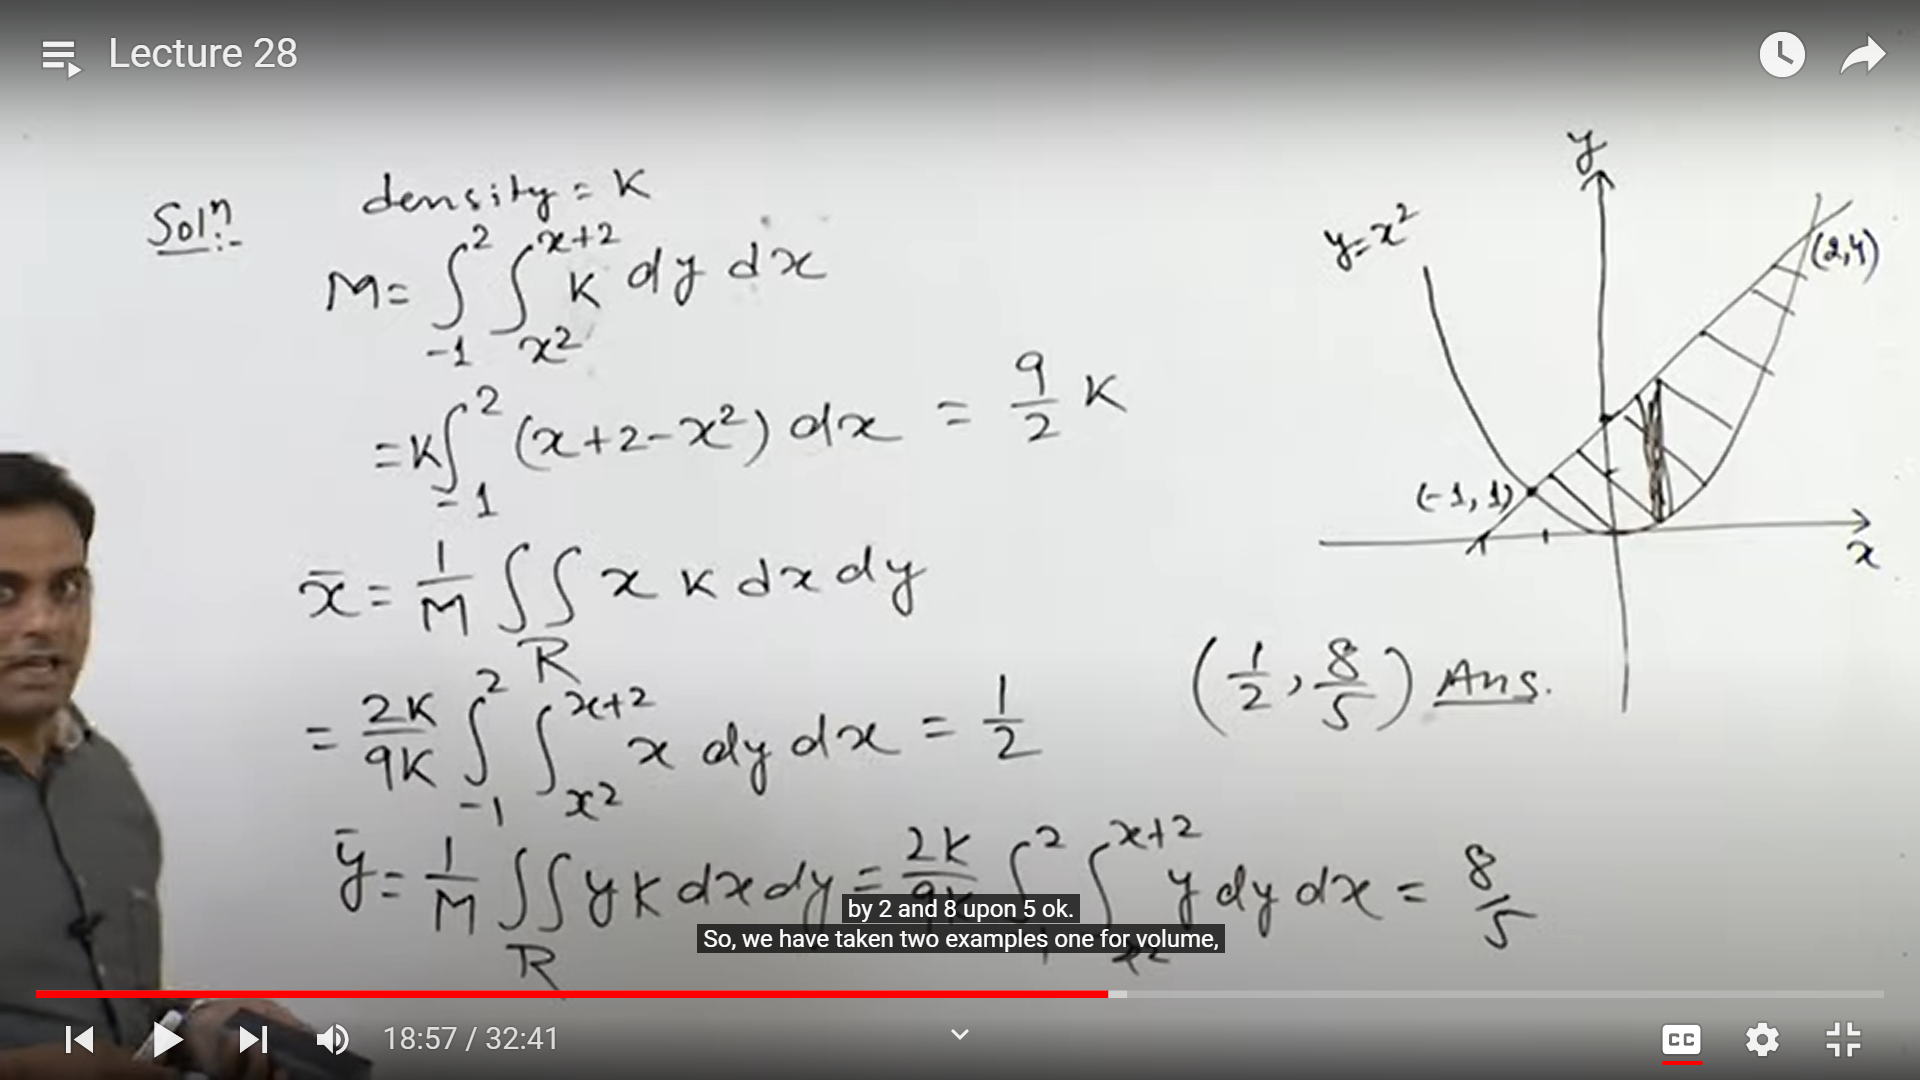 Lecture 28
Solⁿ:-
density = K
M = ∫_{-1}^{2} ∫_{x²}^{x+2} K dy dx
= K ∫_{-1}^{2} (x+2-x²) dx = 9/2 K
x̄ = 1/M ∫∫_R x K dx dy
= 2K/9K ∫_{-1}^{2} ∫_{x²}^{x+2} x dy dx = 1/2
ȳ = 1/M ∫∫_R y K dx dy = 2K/9K ∫_{-1}^{2} ∫_{x²}^{x+2} y dy dx = 8/5
y
y=x²
(2,4)
(-1,1)
x
(1/2, 8/5) Ans.
by 2 and 8 upon 5 ok.
So, we have taken two examples one for volume,
18:57 / 32:41
CC